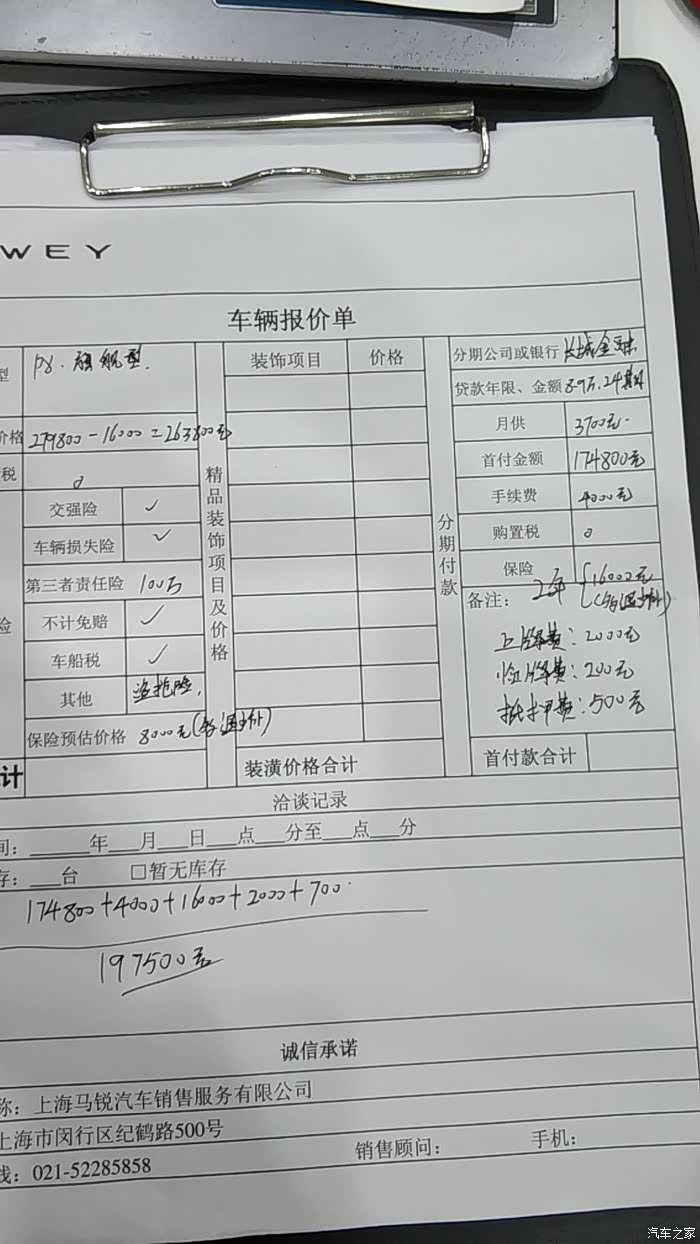 WEY
车辆报价单
型 P8. 旗舰型.
价格 279800-16000=263800元
税 0
交强险 ✓
车辆损失险 ✓
第三者责任险 100万
险 不计免赔 ✓
车船税 ✓
其他 盗抢险.
保险预估价格 8000元(多退少补)
计
精品装饰项目及价格
装饰项目 价格
装潢价格合计
分期付款
分期公司或银行 长城金融
贷款年限、金额 8.9万.24期
月供 3700元.
首付金额 174800元
手续费 4000元
购置税 0
保险 2年 16000元
(多退少补)
备注:
上牌费:2000元
临牌费:200元
抵押费:500元
首付款合计
洽谈记录
间:______年___月___日___点___分至___点___分
存:___台 □暂无库存
174800+4000+16000+2000+700
197500元
诚信承诺
称:上海马锐汽车销售服务有限公司
上海市闵行区纪鹤路500号
线:021-52285858 销售顾问: 手机:
汽车之家